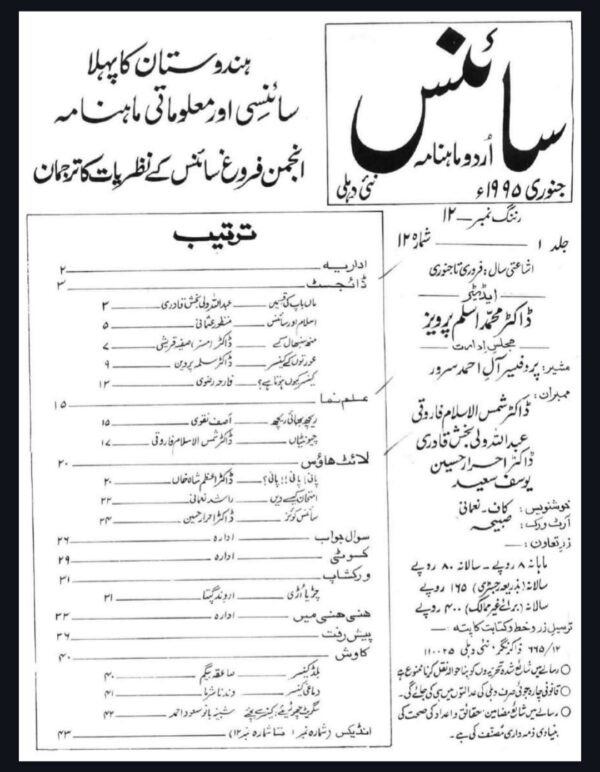 سائنس
اُردو ماہنامہ
جنوری ۱۹۹۵ء نئی دہلی
ہندوستان کا پہلا
سائنسی اور معلوماتی ماہنامہ
انجمن فروغ سائنس کے نظریات کا ترجمان
رننگ نمبر — ۱۲
جلد ۱ شمارہ ۱۲
اشاعتی سال: فروری تا جنوری
ایڈیٹر
ڈاکٹر محمد اسلم پرویز
مجلس ادارت
مشیر: پروفیسر آل احمد سرور
ممبران:
ڈاکٹر شمس الاسلام فاروقی
عبداللہ ولی بخش قادری
ڈاکٹر احرار حسین
یوسف سعید
خوشنویس: کاف۔ نعمانی
آرٹ ورک: صبیحہ
زرِ تعاون:
ماہانہ ۸ روپے — سالانہ ۸۰ روپے
سالانہ (بذریعہ رجسٹری) ۱۶۵ روپے
سالانہ (برائے غیر ممالک) ۴۰۰ روپے
ترسیل زر و خط و کتابت کا پتہ:
۶۶۵/۱۲ ذاکر نگر، نئی دہلی ۱۱۰۰۲۵
○ رسالے میں شائع شدہ تحریروں کو بنا حوالہ نقل کرنا ممنوع ہے
○ قانونی چارہ جوئی صرف دہلی کی عدالتوں میں ہی کی جائے گی۔
○ رسالے میں شائع مضامین، حقائق و اعداد کی صحت کی
بنیادی ذمہ داری مصنف کی ہے۔
ترتیب
اداریہ ۲
ڈائجسٹ ۳
ماں باپ کی قسمیں عبداللہ ولی بخش قادری ۳
اسلام اور سائنس منظور عثمانی ۵
منھ سنبھال کے ڈاکٹر (مسز) صفیہ قریشی ۷
عورتوں کے کینسر ڈاکٹر سلمہ پروین ۹
کینسر کیوں ہوتا ہے؟ فارحہ رضوی ۱۲
علم نما ۱۵
ریچھ بھائی ریچھ آصف نقوی ۱۵
چیونٹیاں ڈاکٹر شمس الاسلام فاروقی ۱۷
لائٹ ہاؤس ۲۰
پانی! پانی!! پانی؟ ڈاکٹر اعظم شاہ خاں ۲۰
امتحان کیسے دیں راشد نعمانی ۲۲
سائنس کوئز ڈاکٹر احرار حسین ۲۴
سوال جواب ادارہ ۲۶
کسوٹی ادارہ ۲۹
ورکشاپ ۳۱
چڑیا اُڑی اروند گپتا ۳۱
ھنسی ھنسی میں ادارہ ۳۳
پیش رفت ۳۶
کاوش ۴۰
بلڈ کینسر صاعقہ بیگم ۴۰
دماغی کینسر وندنا شرما ۴۱
سگریٹ چھوڑیئے، کینسر سے بچئے شہنیز بانو سعود احمد ۴۲
انڈیکس (شمارہ نمبر ۱ تا شمارہ نمبر ۱۲) ۴۳